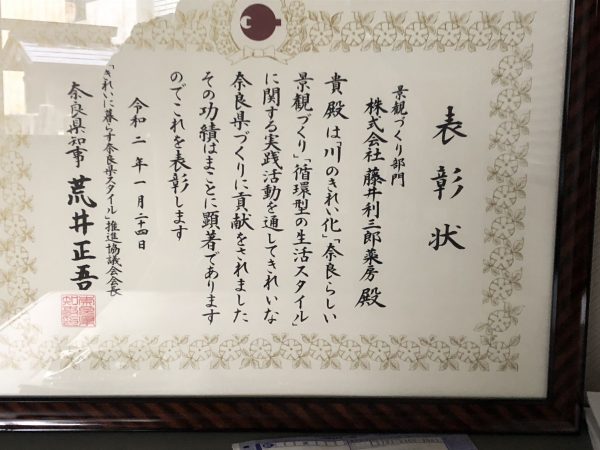 表彰状
景観づくり部門
株式会社 藤井利三郎薬房 殿
貴殿は「川のきれい化」「奈良らしい
景観づくり」「循環型の生活スタイル」
に関する実践活動を通してきれいな
奈良県づくりに貢献をされました
その功績はまことに顕著であります
のでこれを表彰します
令和二年一月二十四日
「きれいに暮らす奈良県スタイル」推進協議会会長
奈良県知事 荒井正吾